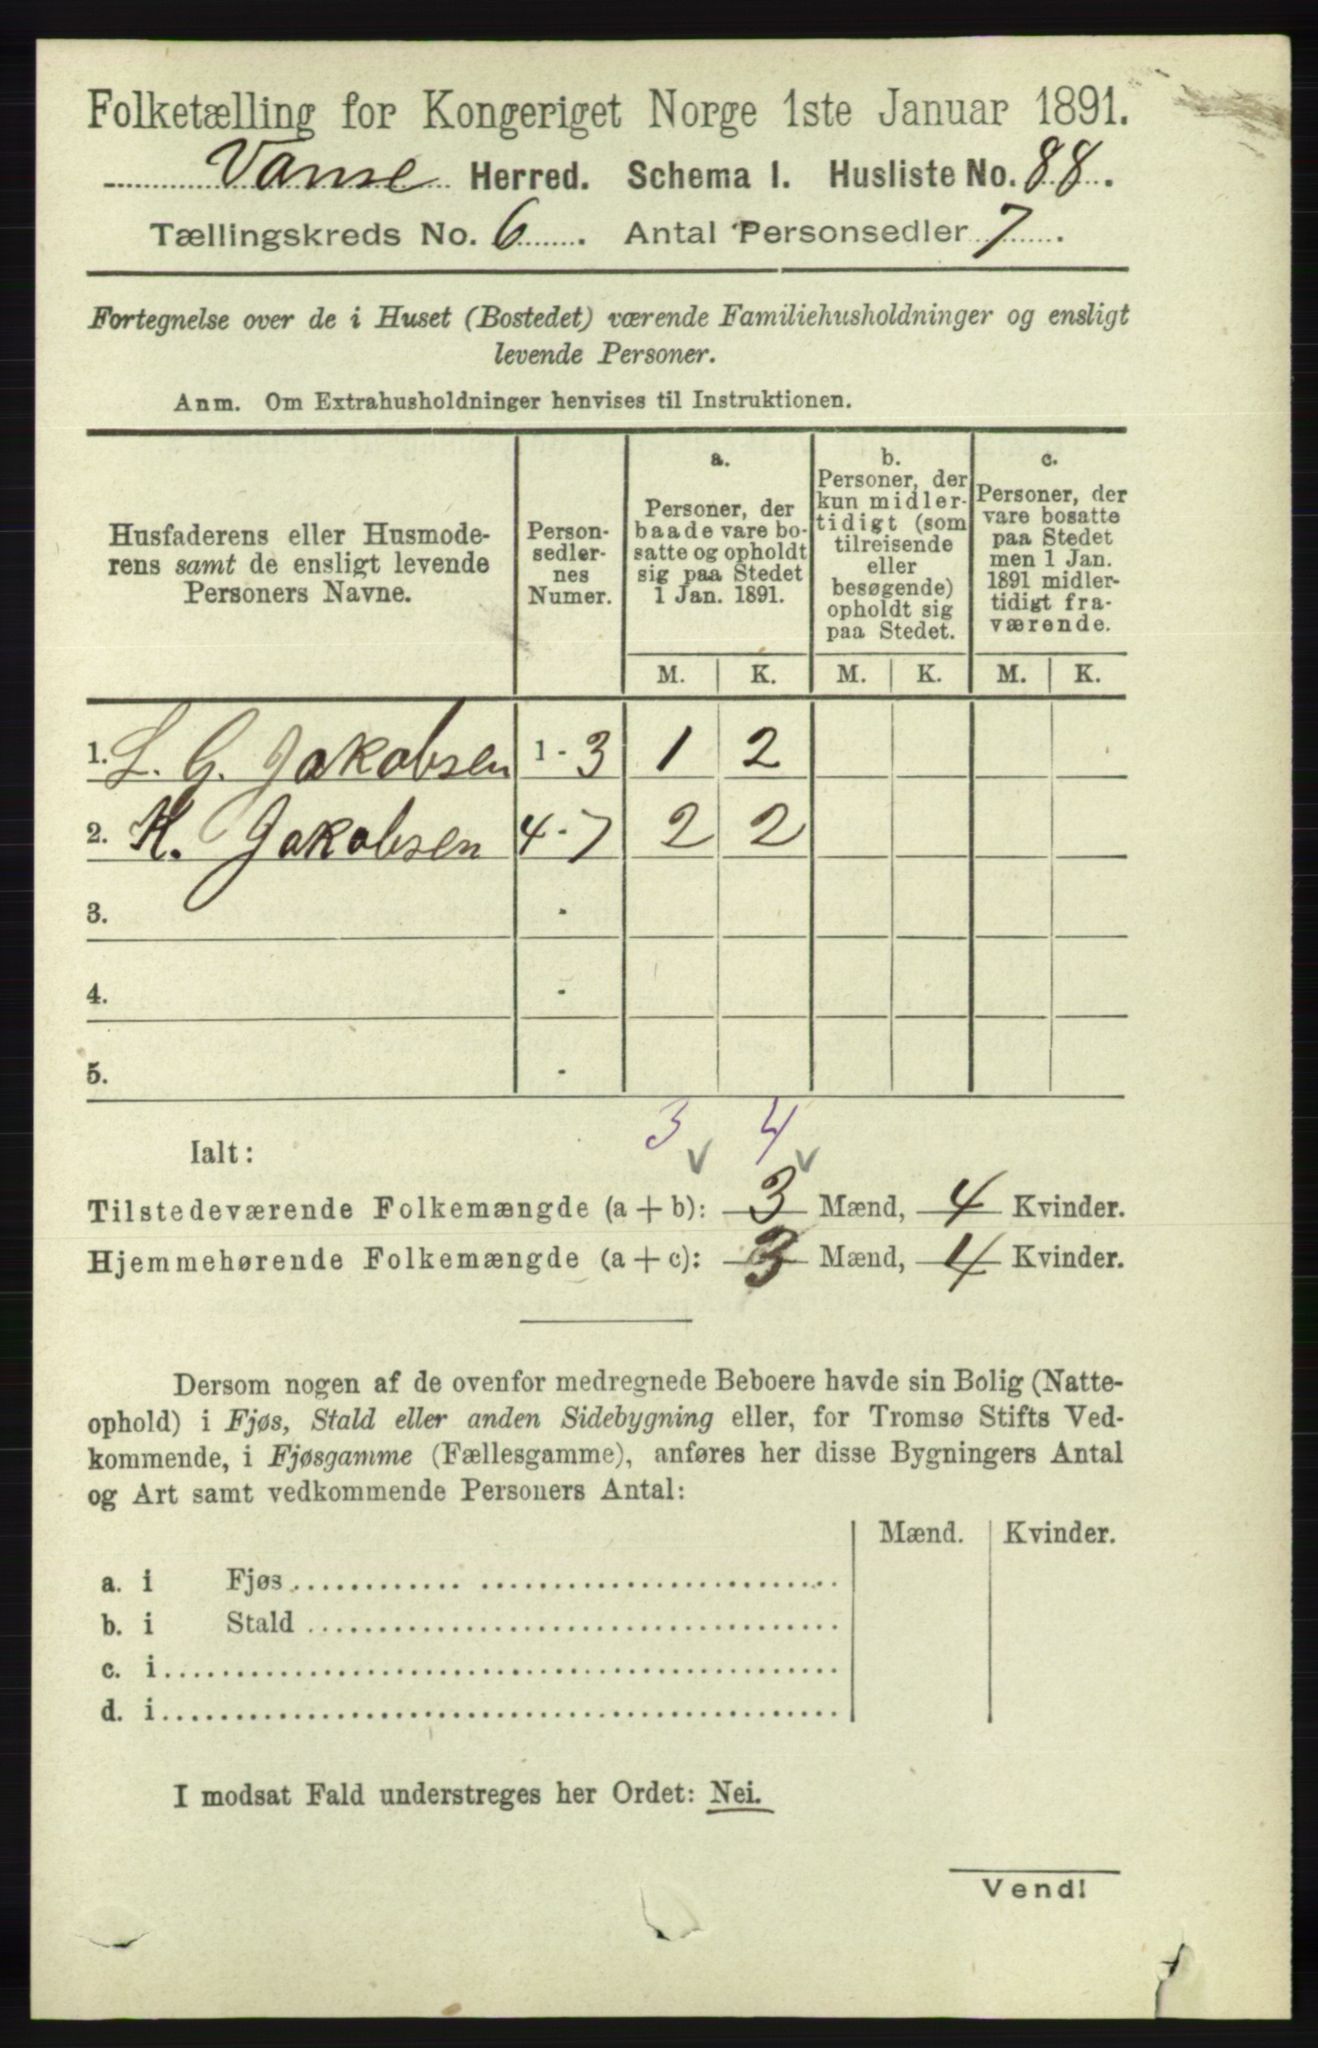 Folketælling for Kongeriget Norge 1ste Januar 1891.
Vanse Herred. Schema I. Husliste No. 88.
Tællingskreds No. 6. Antal Personsedler 7.
Fortegnelse over de i Huset (Bostedet) værende Familiehusholdninger og ensligt
levende Personer.
Anm. Om Extrahusholdninger henvises til Instruktionen.
Husfaderens eller Husmode-
rens samt de ensligt levende
Personers Navne.
Person-
sedler-
nes
Numer.
a.
Personer, der
baade vare bo-
satte og opholdt
sig paa Stedet
1 Jan. 1891.
b.
Personer, der
kun midler-
tidigt (som
tilreisende
eller
besøgende)
opholdt sig
paa Stedet.
c.
Personer, der
vare bosatte
paa Stedet
men 1 Jan.
1891 midler-
tidigt fra-
værende.
M. K. M. K. M. K.
1. L. G. Jakobsen 1 - 3 1 2
2. K. Jakobsen 4 - 7 2 2
3. -
4. -
5. -
3 4
Ialt:
Tilstedeværende Folkemængde (a + b): 3 Mænd, 4 Kvinder.
Hjemmehørende Folkemængde (a + c): 3 Mænd, 4 Kvinder.
Dersom nogen af de ovenfor medregnede Beboere havde sin Bolig (Natte-
ophold) i Fjøs, Stald eller anden Sidebygning eller, for Tromsø Stifts Ved-
kommende, i Fjøsgamme (Fællesgamme), anføres her disse Bygningers Antal
og Art samt vedkommende Personers Antal:
Mænd. Kvinder.
a. i Fjøs
b. i Stald
c. i
d. i
I modsat Fald understreges her Ordet: Nei.
Vend!